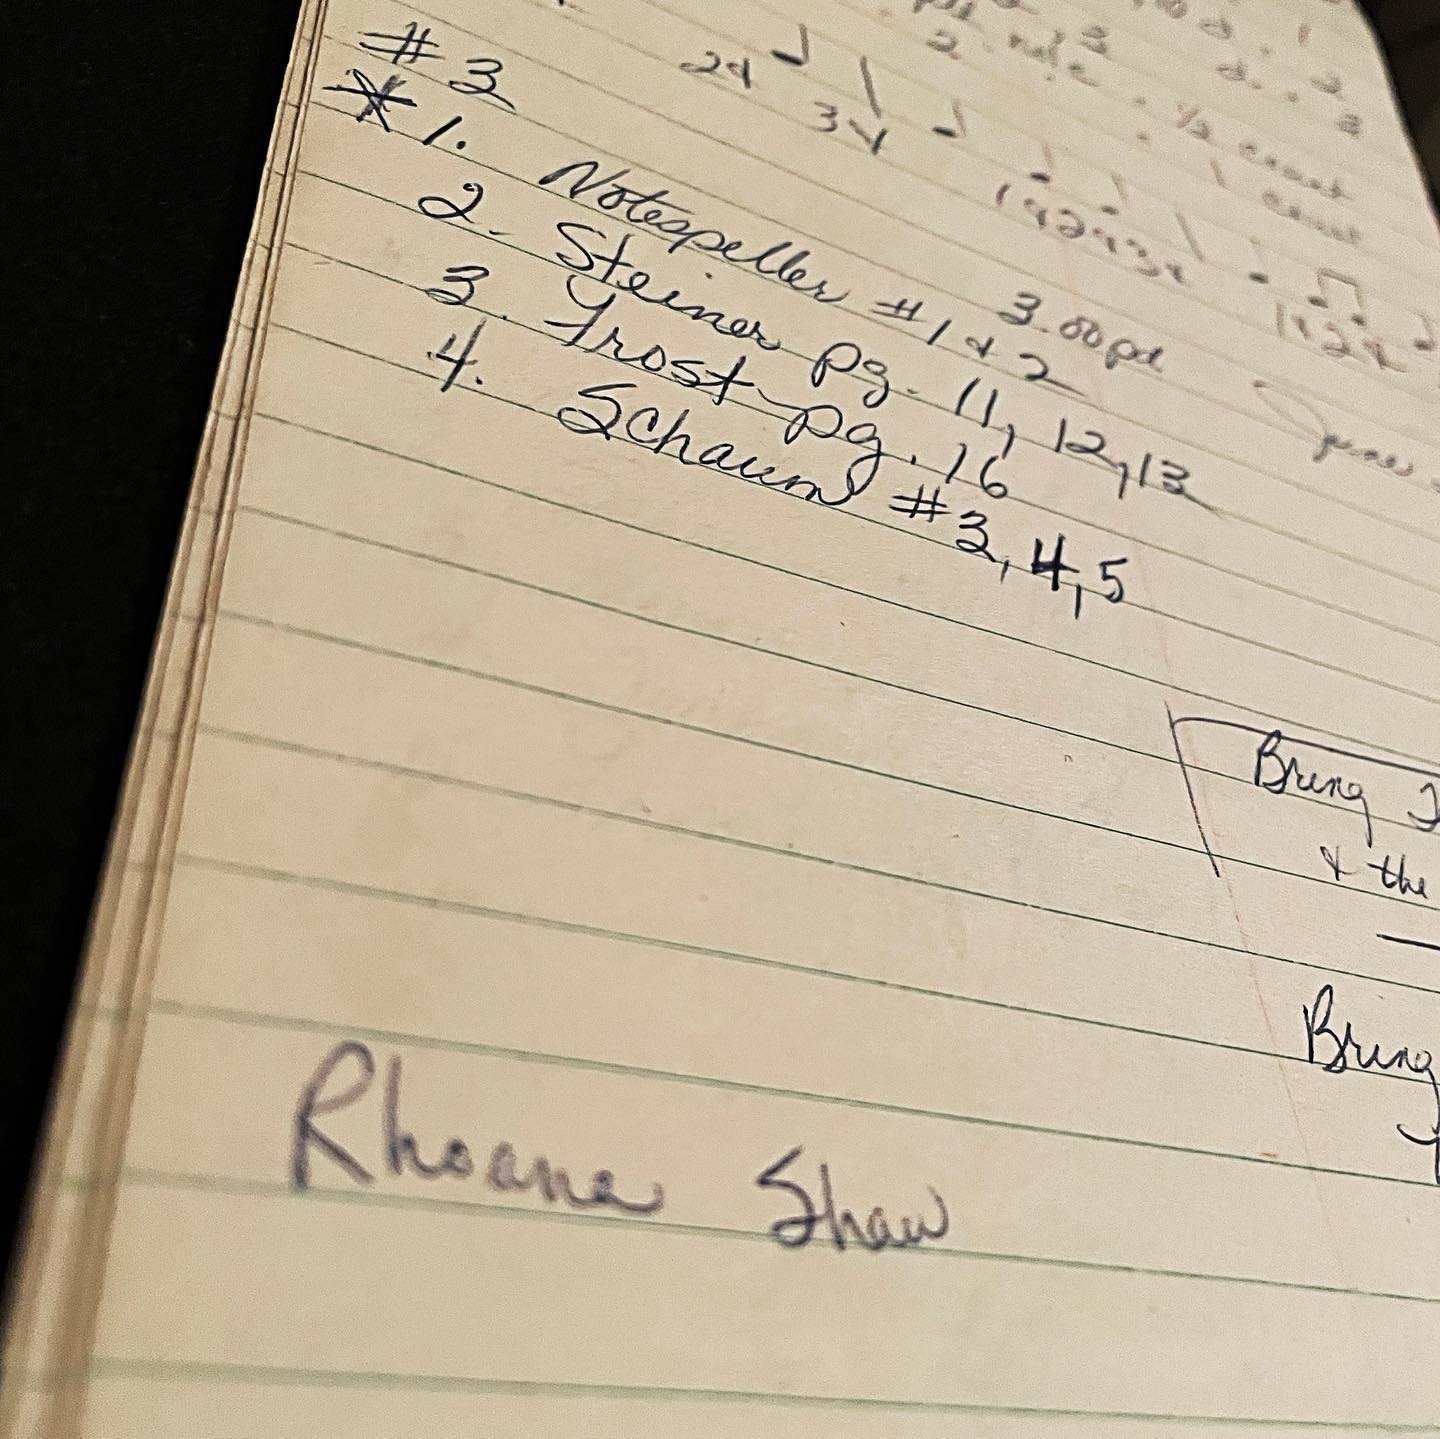 2. note
1/2 count
1 count
2 &
3 &
1 & 2 & 3 &
1 & 2 &
#3
3.00 pd
* 1. Notespeller #1 & 2
2. Steiner pg. 11, 12, 13
3. Frost pg. 16
4. Schaum #3, 4, 5
Bring
& the
Bring
Rhoana Shaw